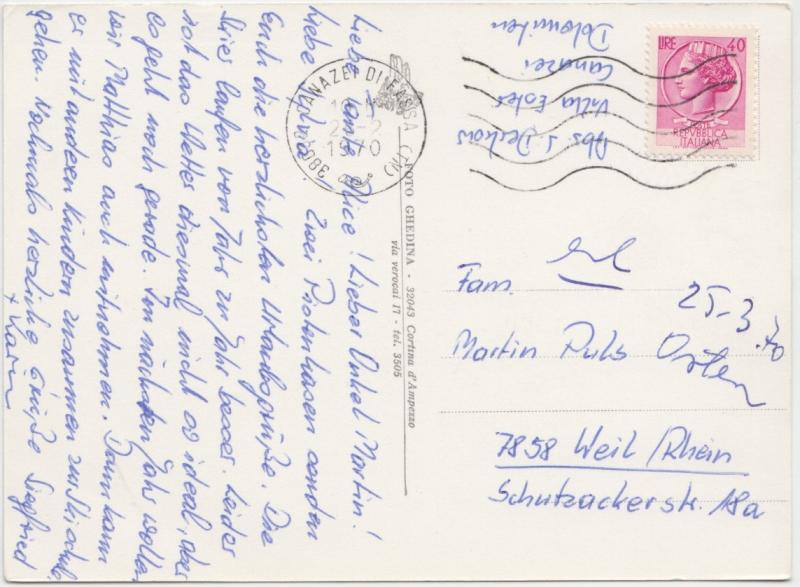 Liebe Tante Alice! Lieber Onkel Martin!
Liebe Zwei Pistenhasen senden
Euch die herzlichsten Urlaubsgrüße. Die
Skis laufen von Jahr zu Jahr besser. Leider
ist das Wetter diesmal nicht so ideal, aber
es geht noch gerade. Im nächsten Jahr wollen
wir Matthias auch mitnehmen. Dann kann
er mit anderen Kindern zusammen zur Skischule
gehen. Nochmals herzliche Grüße Siegfried
+ Karin
FOTO GHEDINA - 32043 Cortina d'Ampezzo
via verocai 17 - tel. 3505
38032 CANAZEI DI FASSA (TN)
1970
Abs. S.
Villa Ester
Canazei
Dolomiten
LIRE 40
POSTE
REPVBBLICA
ITALIANA
Fam.
25-3.70
Martin Puls Osten
7858 Weil/Rhein
Schutzackerstr. 18a